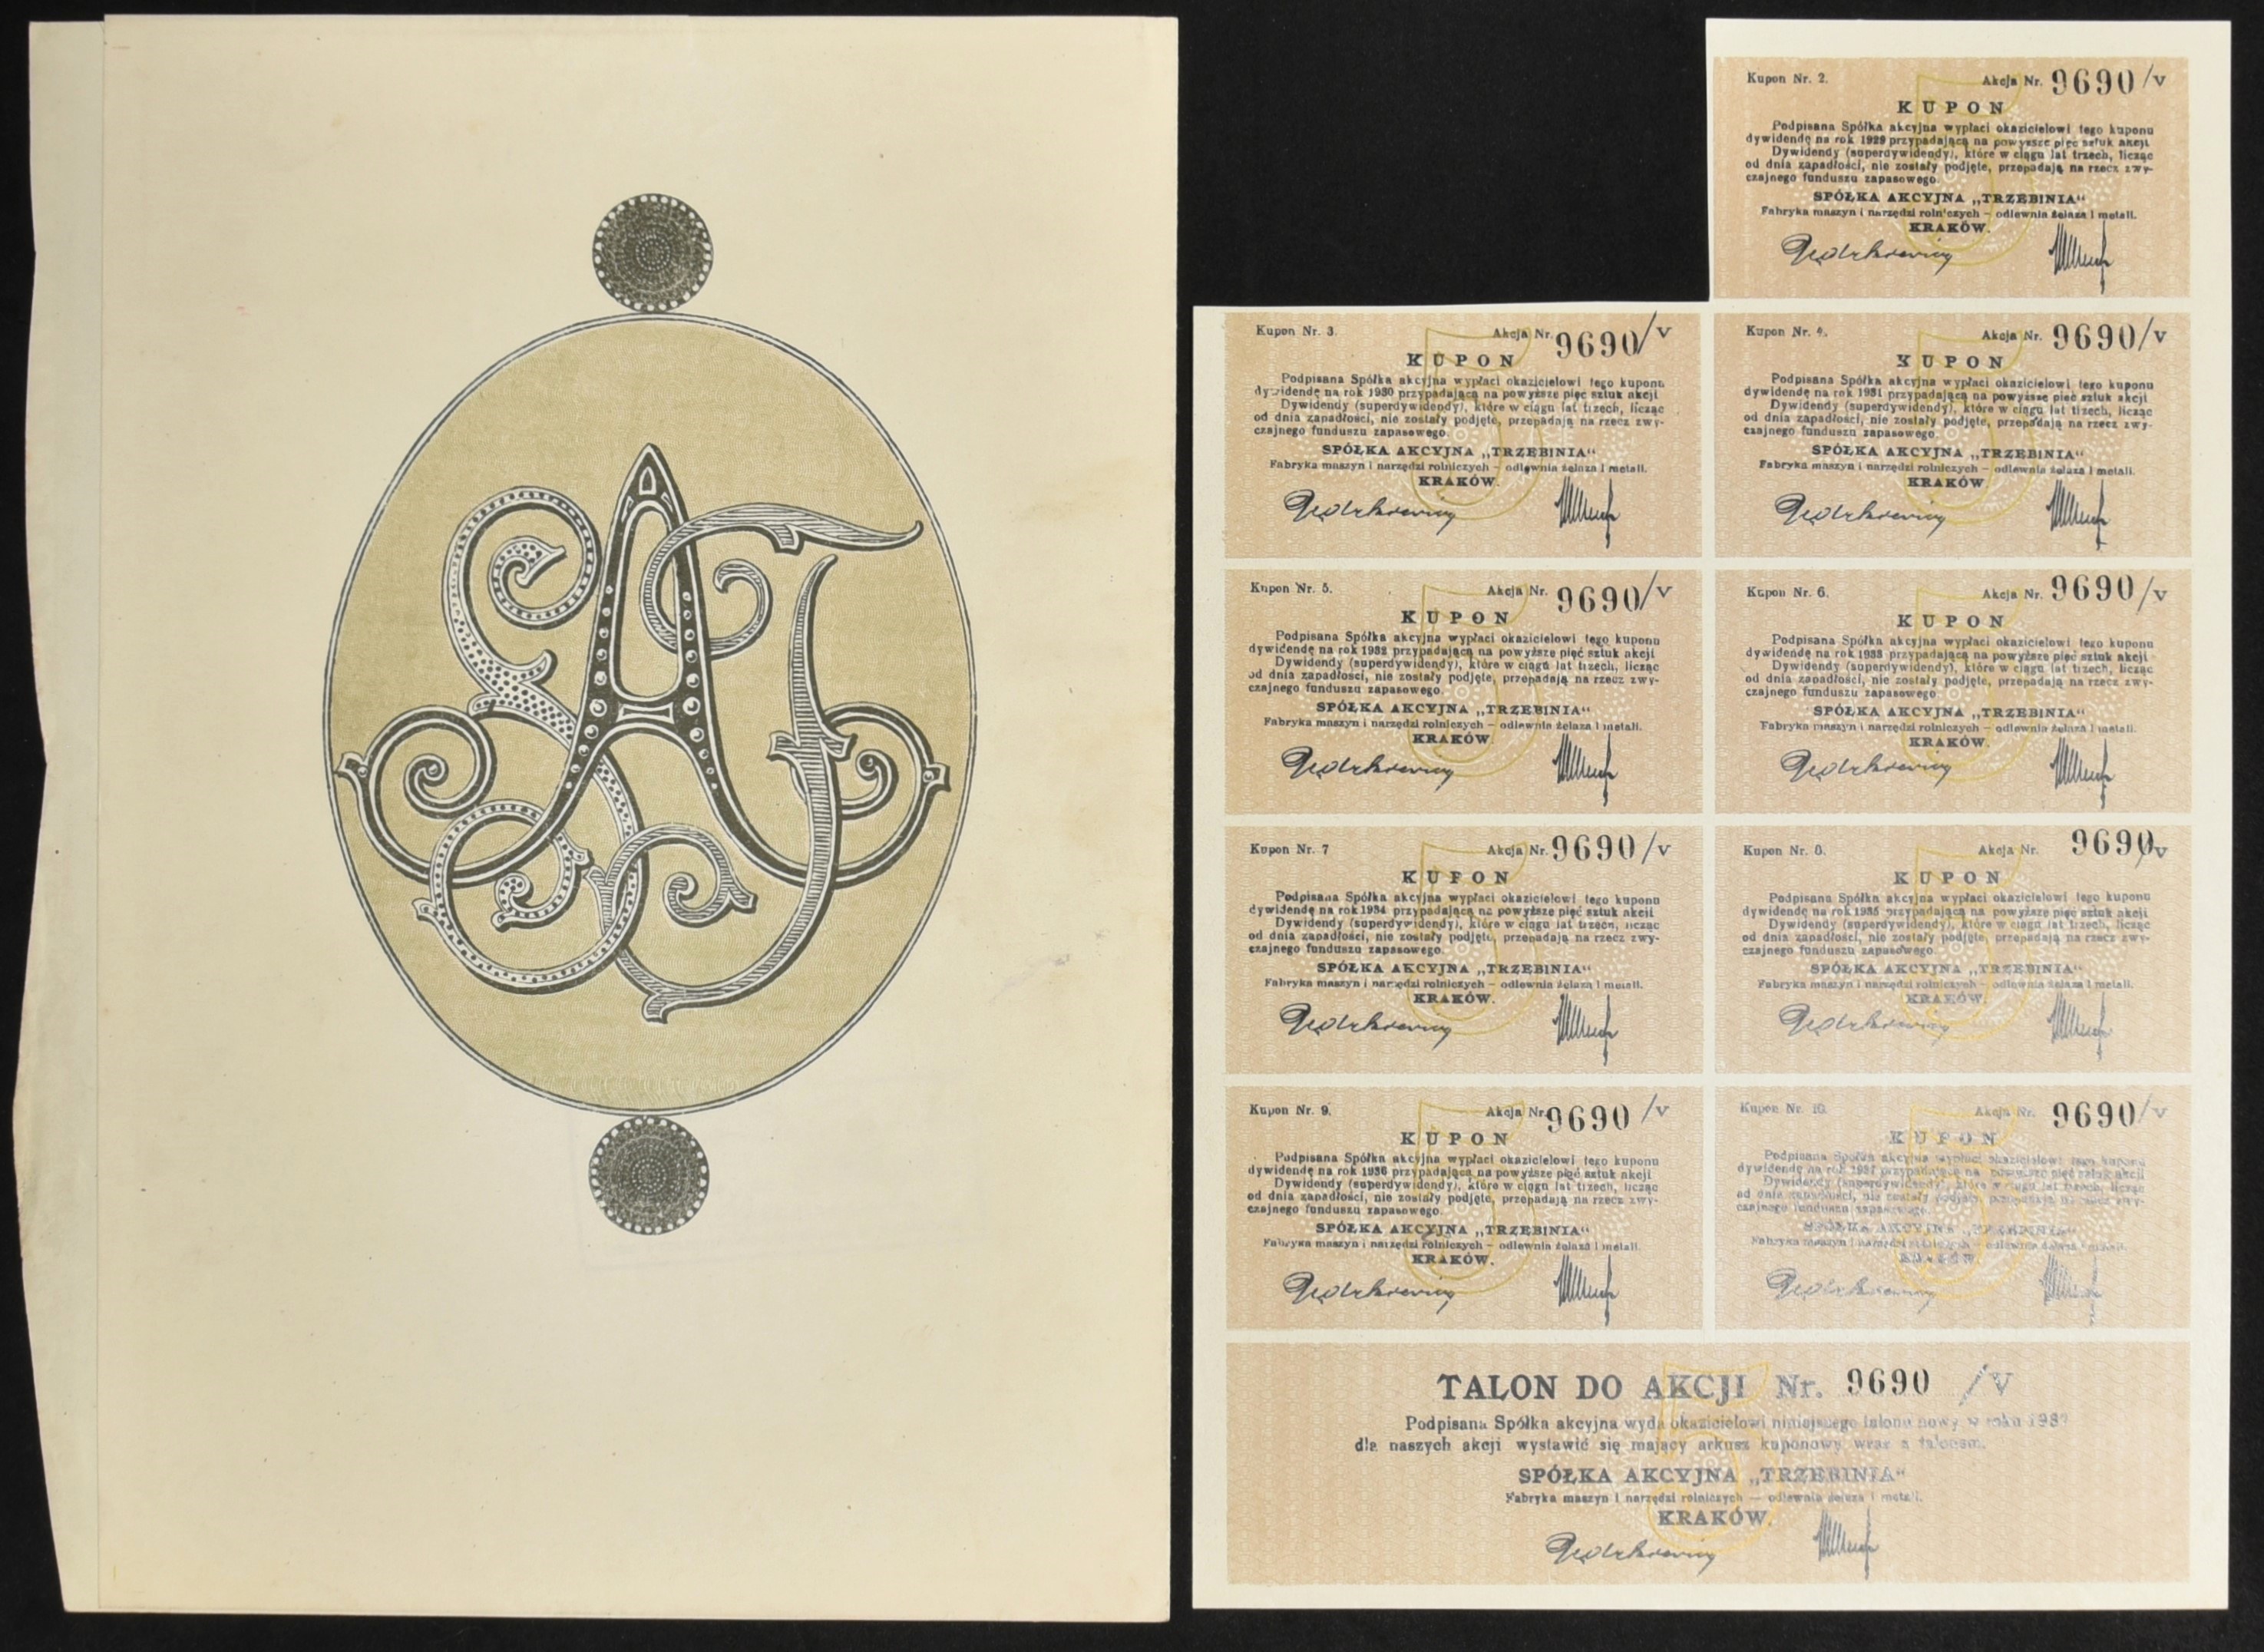 Kupon Nr. 2. Akcja Nr. 9690/V
KUPON
Podpisana Spółka akcyjna wypłaci okazicielowi tego kuponu
dywidendę na rok 1929 przypadającą na powyższe pięć sztuk akcji
Dywidendy (superdywidendy), które w ciągu lat trzech, licząc
od dnia zapadłości, nie zostały podjęte, przepadają na rzecz zwy-
czajnego funduszu zapasowego.
SPÓŁKA AKCYJNA „TRZEBINIA“
Fabryka maszyn i narzędzi rolniczych – odlewnia żelaza i metali.
KRAKÓW.
Kupon Nr. 3. Akcja Nr. 9690/V
KUPON
Podpisana Spółka akcyjna wypłaci okazicielowi tego kuponu
dywidendę na rok 1930 przypadającą na powyższe pięć sztuk akcji
Dywidendy (superdywidendy), które w ciągu lat trzech, licząc
od dnia zapadłości, nie zostały podjęte, przepadają na rzecz zwy-
czajnego funduszu zapasowego.
SPÓŁKA AKCYJNA „TRZEBINIA“
Fabryka maszyn i narzędzi rolniczych – odlewnia żelaza i metali.
KRAKÓW.
Kupon Nr. 4. Akcja Nr. 9690/V
KUPON
Podpisana Spółka akcyjna wypłaci okazicielowi tego kuponu
dywidendę na rok 1931 przypadającą na powyższe pięć sztuk akcji
Dywidendy (superdywidendy), które w ciągu lat trzech, licząc
od dnia zapadłości, nie zostały podjęte, przepadają na rzecz zwy-
czajnego funduszu zapasowego.
SPÓŁKA AKCYJNA „TRZEBINIA“
Fabryka maszyn i narzędzi rolniczych – odlewnia żelaza i metali.
KRAKÓW
Kupon Nr. 5. Akcja Nr. 9690/V
KUPON
Podpisana Spółka akcyjna wypłaci okazicielowi tego kuponu
dywidendę na rok 1932 przypadającą na powyższe pięć sztuk akcji
Dywidendy (superdywidendy), które w ciągu lat trzech, licząc
od dnia zapadłości, nie zostały podjęte, przepadają na rzecz zwy-
czajnego funduszu zapasowego.
SPÓŁKA AKCYJNA „TRZEBINIA“
Fabryka maszyn i narzędzi rolniczych – odlewnia żelaza i metali.
KRAKÓW
Kupon Nr. 6. Akcja Nr. 9690/V
KUPON
Podpisana Spółka akcyjna wypłaci okazicielowi tego kuponu
dywidendę na rok 1933 przypadającą na powyższe pięć sztuk akcji
Dywidendy (superdywidendy), które w ciągu lat trzech, licząc
od dnia zapadłości, nie zostały podjęte, przepadają na rzecz zwy-
czajnego funduszu zapasowego
SPÓŁKA AKCYJNA „TRZEBINIA“
Fabryka maszyn i narzędzi rolniczych – odlewnia żelaza i metali.
KRAKÓW.
Kupon Nr. 7 Akcja Nr. 9690/V
KUPON
Podpisana Spółka akcyjna wypłaci okazicielowi tego kuponu
dywidendę na rok 1934 przypadającą na powyższe pięć sztuk akcji
Dywidendy (superdywidendy), które w ciągu lat trzech, licząc
od dnia zapadłości, nie zostały podjęte, przepadają na rzecz zwy-
czajnego funduszu zapasowego.
SPÓŁKA AKCYJNA „TRZEBINIA“
Fabryka maszyn i narzędzi rolniczych – odlewnia żelaza i metali.
KRAKÓW.
Kupon Nr. 8. Akcja Nr. 9690/V
KUPON
Podpisana Spółka akcyjna wypłaci okazicielowi tego kuponu
dywidendę na rok 1935 przypadającą na powyższe pięć sztuk akcji
Dywidendy (superdywidendy), które w ciągu lat trzech, licząc
od dnia zapadłości, nie zostały podjęte, przepadają na rzecz zwy-
czajnego funduszu zapasowego
SPÓŁKA AKCYJNA „TRZEBINIA“
Fabryka maszyn i narzędzi rolniczych – odlewnia żelaza i metali.
KRAKÓW.
Kupon Nr. 9. Akcja Nr. 9690/V
KUPON
Podpisana Spółka akcyjna wypłaci okazicielowi tego kuponu
dywidendę na rok 1936 przypadającą na powyższe pięć sztuk akcji
Dywidendy (superdywidendy), które w ciągu lat trzech, licząc
od dnia zapadłości, nie zostały podjęte, przepadają na rzecz zwy-
czajnego funduszu zapasowego
SPÓŁKA AKCYJNA „TRZEBINIA“
Fabryka maszyn i narzędzi rolniczych – odlewnia żelaza i metali.
KRAKÓW.
Kupon Nr. 10. Akcja Nr. 9690/V
KUPON
Podpisana Spółka akcyjna wypłaci okazicielowi tego kuponu
dywidendę na rok 1937 przypadającą na powyższe pięć sztuk akcji
Dywidendy (superdywidendy), które w ciągu lat trzech, licząc
od dnia zapadłości, nie zostały podjęte, przepadają na rzecz zwy-
czajnego funduszu zapasowego.
SPÓŁKA AKCYJNA „TRZEBINIA“
Fabryka maszyn i narzędzi rolniczych – odlewnia żelaza i metali.
KRAKÓW
TALON DO AKCJI Nr. 9690 /V
Podpisana Spółka akcyjna wyda okazicielowi niniejszego talonu nowy w roku
dla naszych akcji wystawić się mający arkusz kuponowy wraz z talonem.
SPÓŁKA AKCYJNA „TRZEBINIA“
Fabryka maszyn i narzędzi rolniczych — odlewnia żelaza i metali.
KRAKÓW.